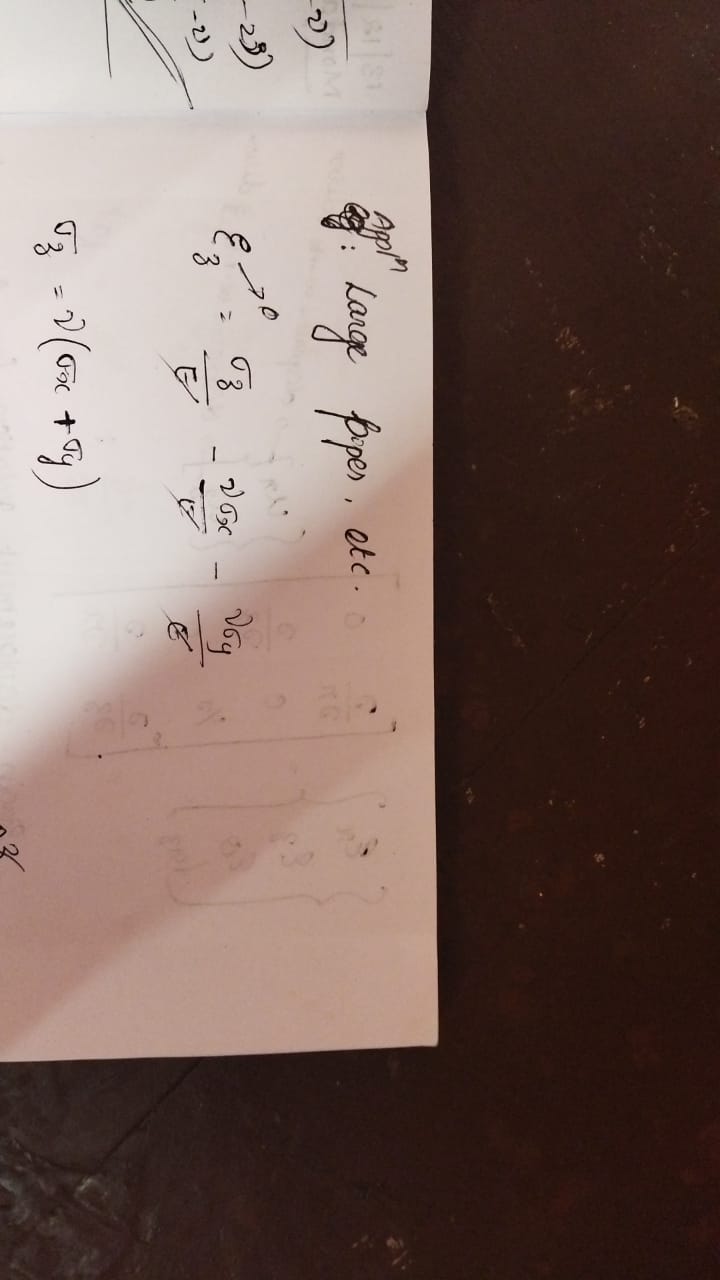 -ν)
-2ϑ)
-ν)
Applⁿ: Large pipes, etc.
ε₃ → 0 = σ₃/E - νσx/E - νσy/E
σ₃ = ν(σx + σy)